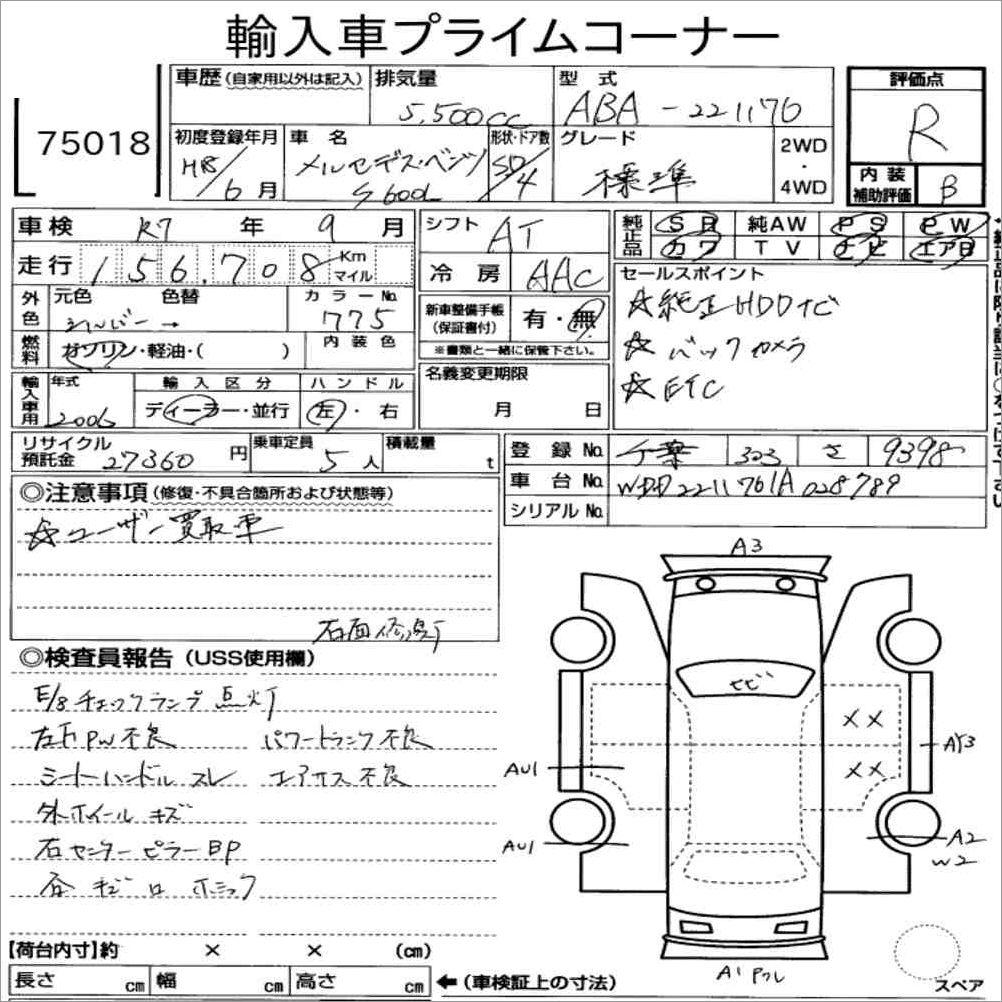 輸入車プライムコーナー
75018
車歴 (自家用以外は記入)
排気量
5,500cc
型 式
ABA - 221176
評価点
R
初度登録年月
H18/6月
車 名
メルセデス・ベンツ
S600L
形状・ドア数
SD/4
グレード
標準
2WD
・
4WD
内装
補助評価
B
車検 R7 年 9 月
シフト AT
純正品 SR 純AW PS PW
カワ TV ナビ エアB
走行 156,708 Km
マイル
冷房 AAC
セールスポイント
☆純正HDDナビ
☆バックカメラ
☆ETC
外色 元色 色替
シルバー →
カラーNo.
775
新車整備手帳
(保証書付)
有・無
※書類と一緒に保管下さい。
燃料 ガソリン・軽油・( )
内装色
輸入車用 年式
2006
輸入区分
ディーラー・並行
ハンドル
左・右
名義変更期限
月 日
リサイクル
預託金 27360 円
乗車定員
5人
積載量
t
登録No. 千葉 303 さ 9398
車台No. WDD2211761A028789
シリアルNo.
◎注意事項 (修復・不具合箇所および状態等)
☆ユーザー買取車
右面修
◎検査員報告 (USS使用欄)
E/gチェックランプ点灯
左F PW不良 パワートランク不良
シートハンドル スレ エアサス不良
外ホイール キズ
右センターピラーBP
A3
ヒビ
XX
XX
AU1
AU1
A2
W2
A1
【荷台内寸】約 × × (cm)
長さ cm 幅 cm 高さ cm
←(車検証上の寸法)
スペア